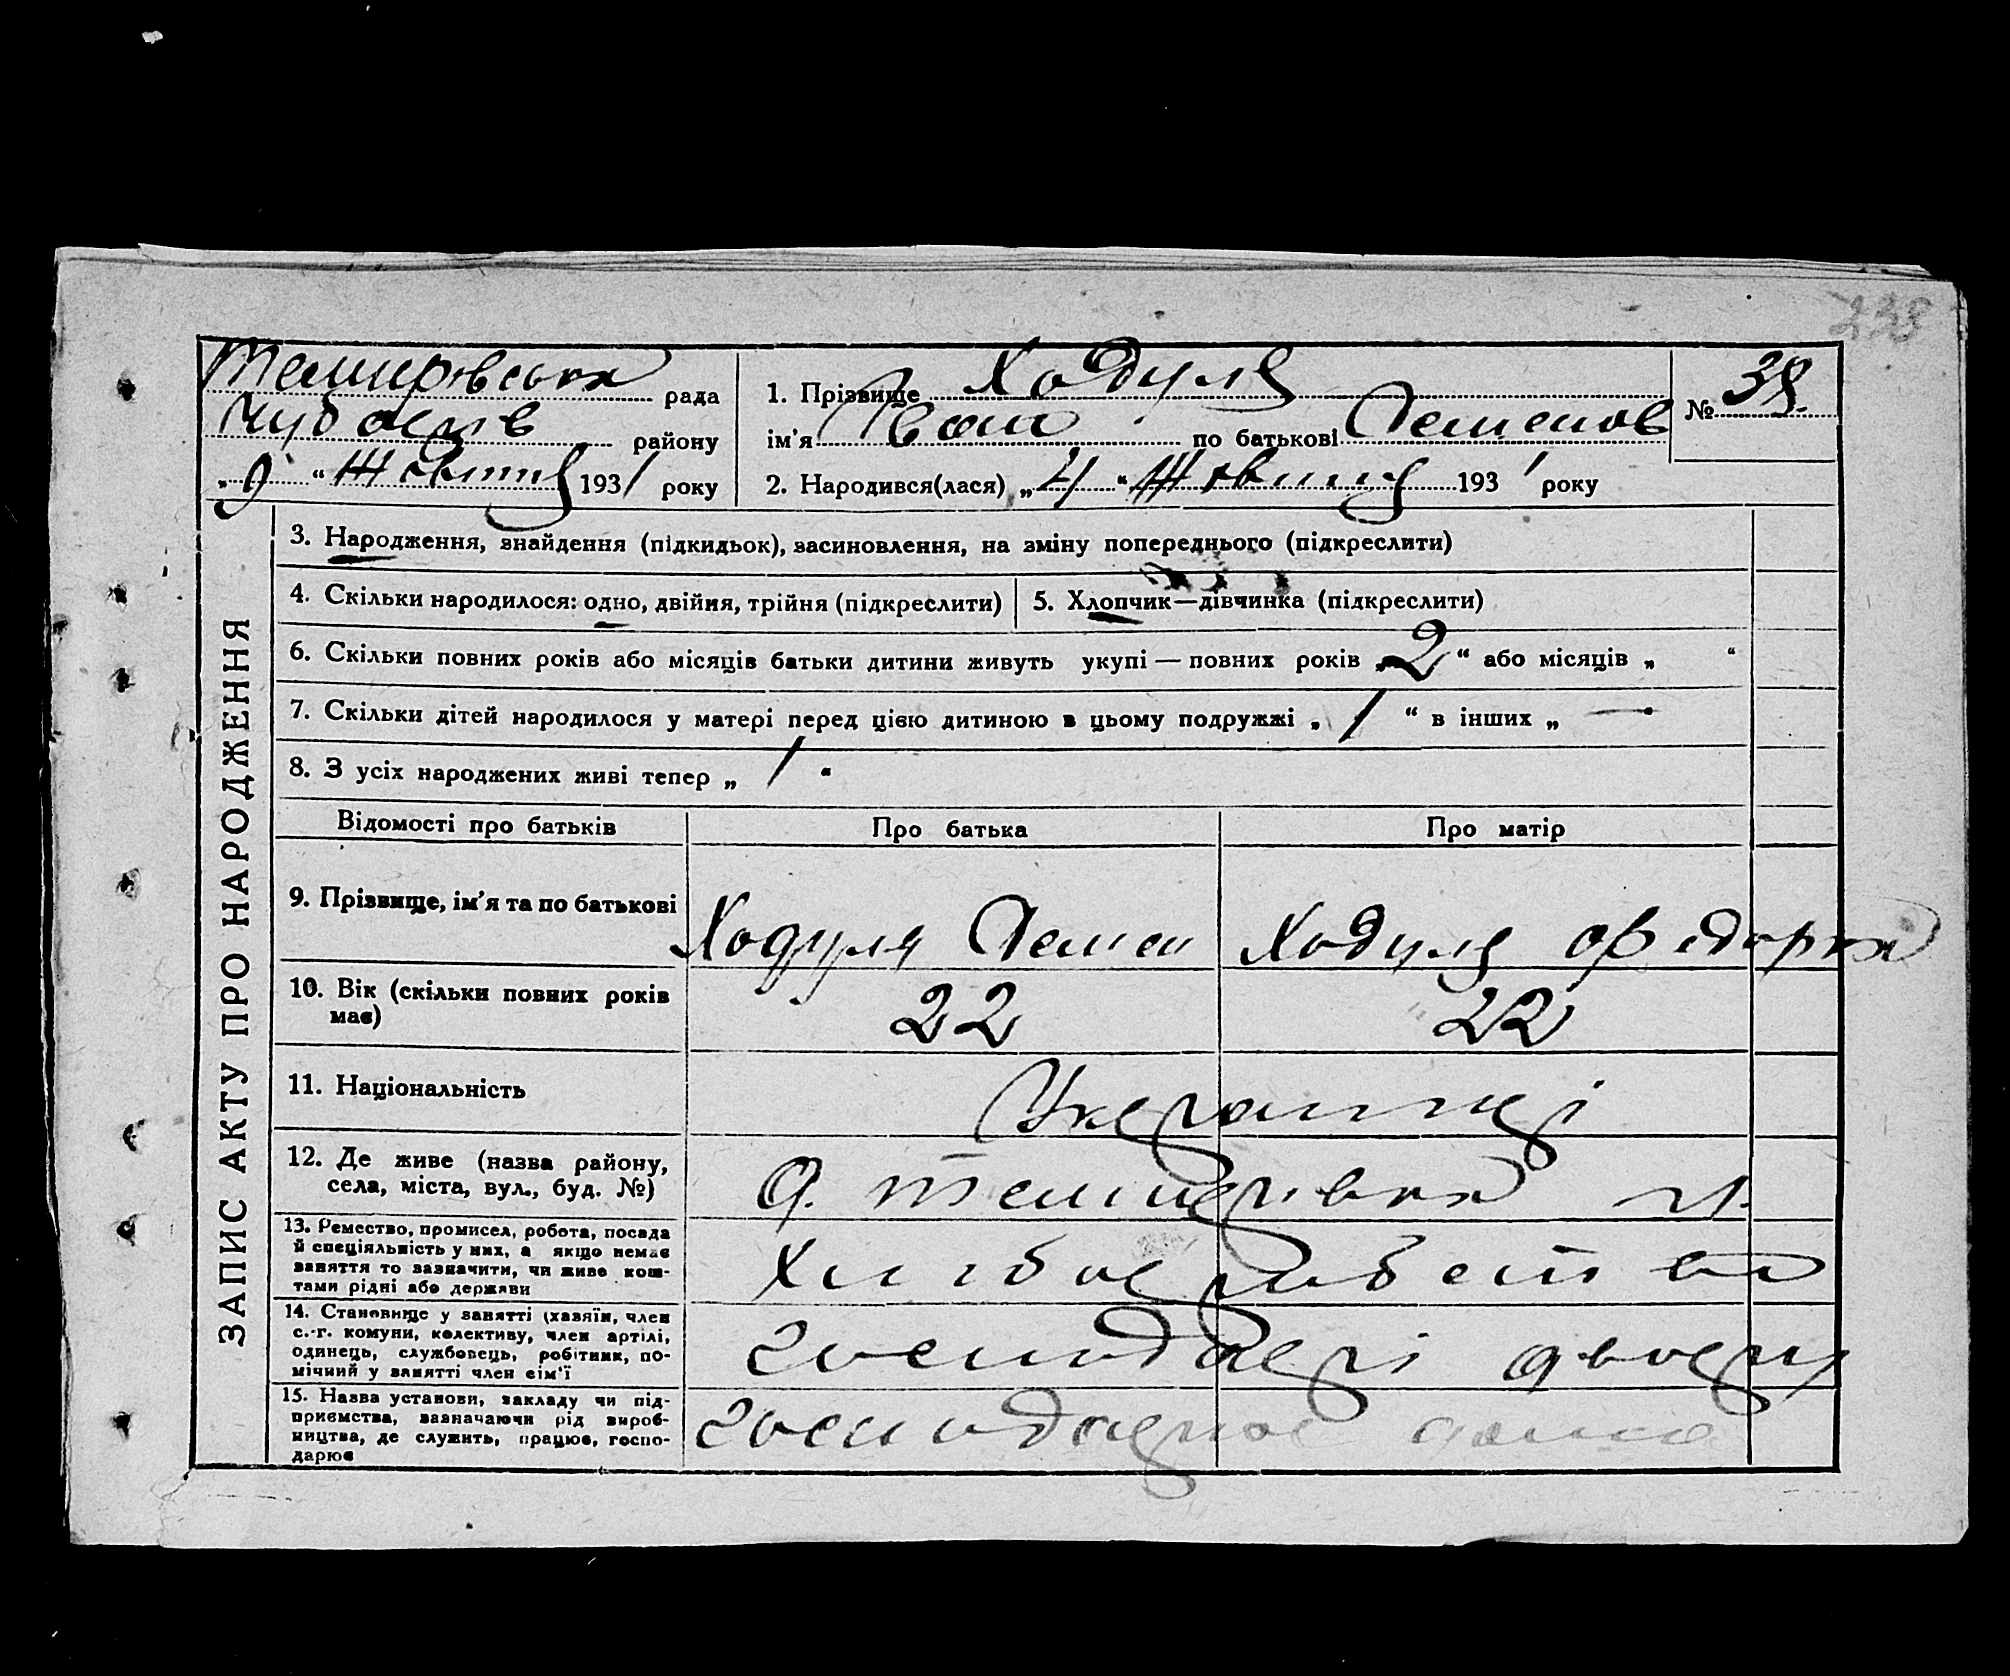 233
Темирівська рада
Чубарів району
„ 9 “ Жовтня 1931 року
1. Прізвище Ходуля
ім'я Іван по батькові Семенов
№ 38
2. Народився(лася) „ 4 “ Жовтня 1931 року
ЗАПИС АКТУ ПРО НАРОДЖЕННЯ
3. Народження, знайдення (підкидьок), засиновлення, на зміну попереднього (підкреслити)
4. Скільки народилося: одно, двійня, трійня (підкреслити)
5. Хлопчик—дівчинка (підкреслити)
6. Скільки повних років або місяців батьки дитини живуть укупі — повних років „ 2 “ або місяців „ “
7. Скільки дітей народилося у матері перед цією дитиною в цьому подружжі „ 1 “ в інших „ — “
8. З усіх народжених живі тепер „ 1 “
Відомості про батьків
Про батька
Про матір
9. Прізвище, ім'я та по батькові
Ходуля Семен
Ходуля Федорка
10. Вік (скільки повних років
має)
22
22
11. Національність
Українці
12. Де живе (назва району,
села, міста, вул., буд. №)
с. Темирівка
13. Ремество, промисел, робота, посада
й спеціяльність у них, а якщо немає
заняття то зазначити, чи живе кош-
тами рідні або держави
Хліборобство
14. Становище у занятті (хазяїн, член
с.-г. комуни, колективу, член артілі,
одинець, службовець, робітник, по-
мічний у занятті член сім'ї
господарі двору
15. Назва установи, закладу чи під-
приємства, зазначаючи рід вироб-
ництва, де служить, працює, госпо-
дарює